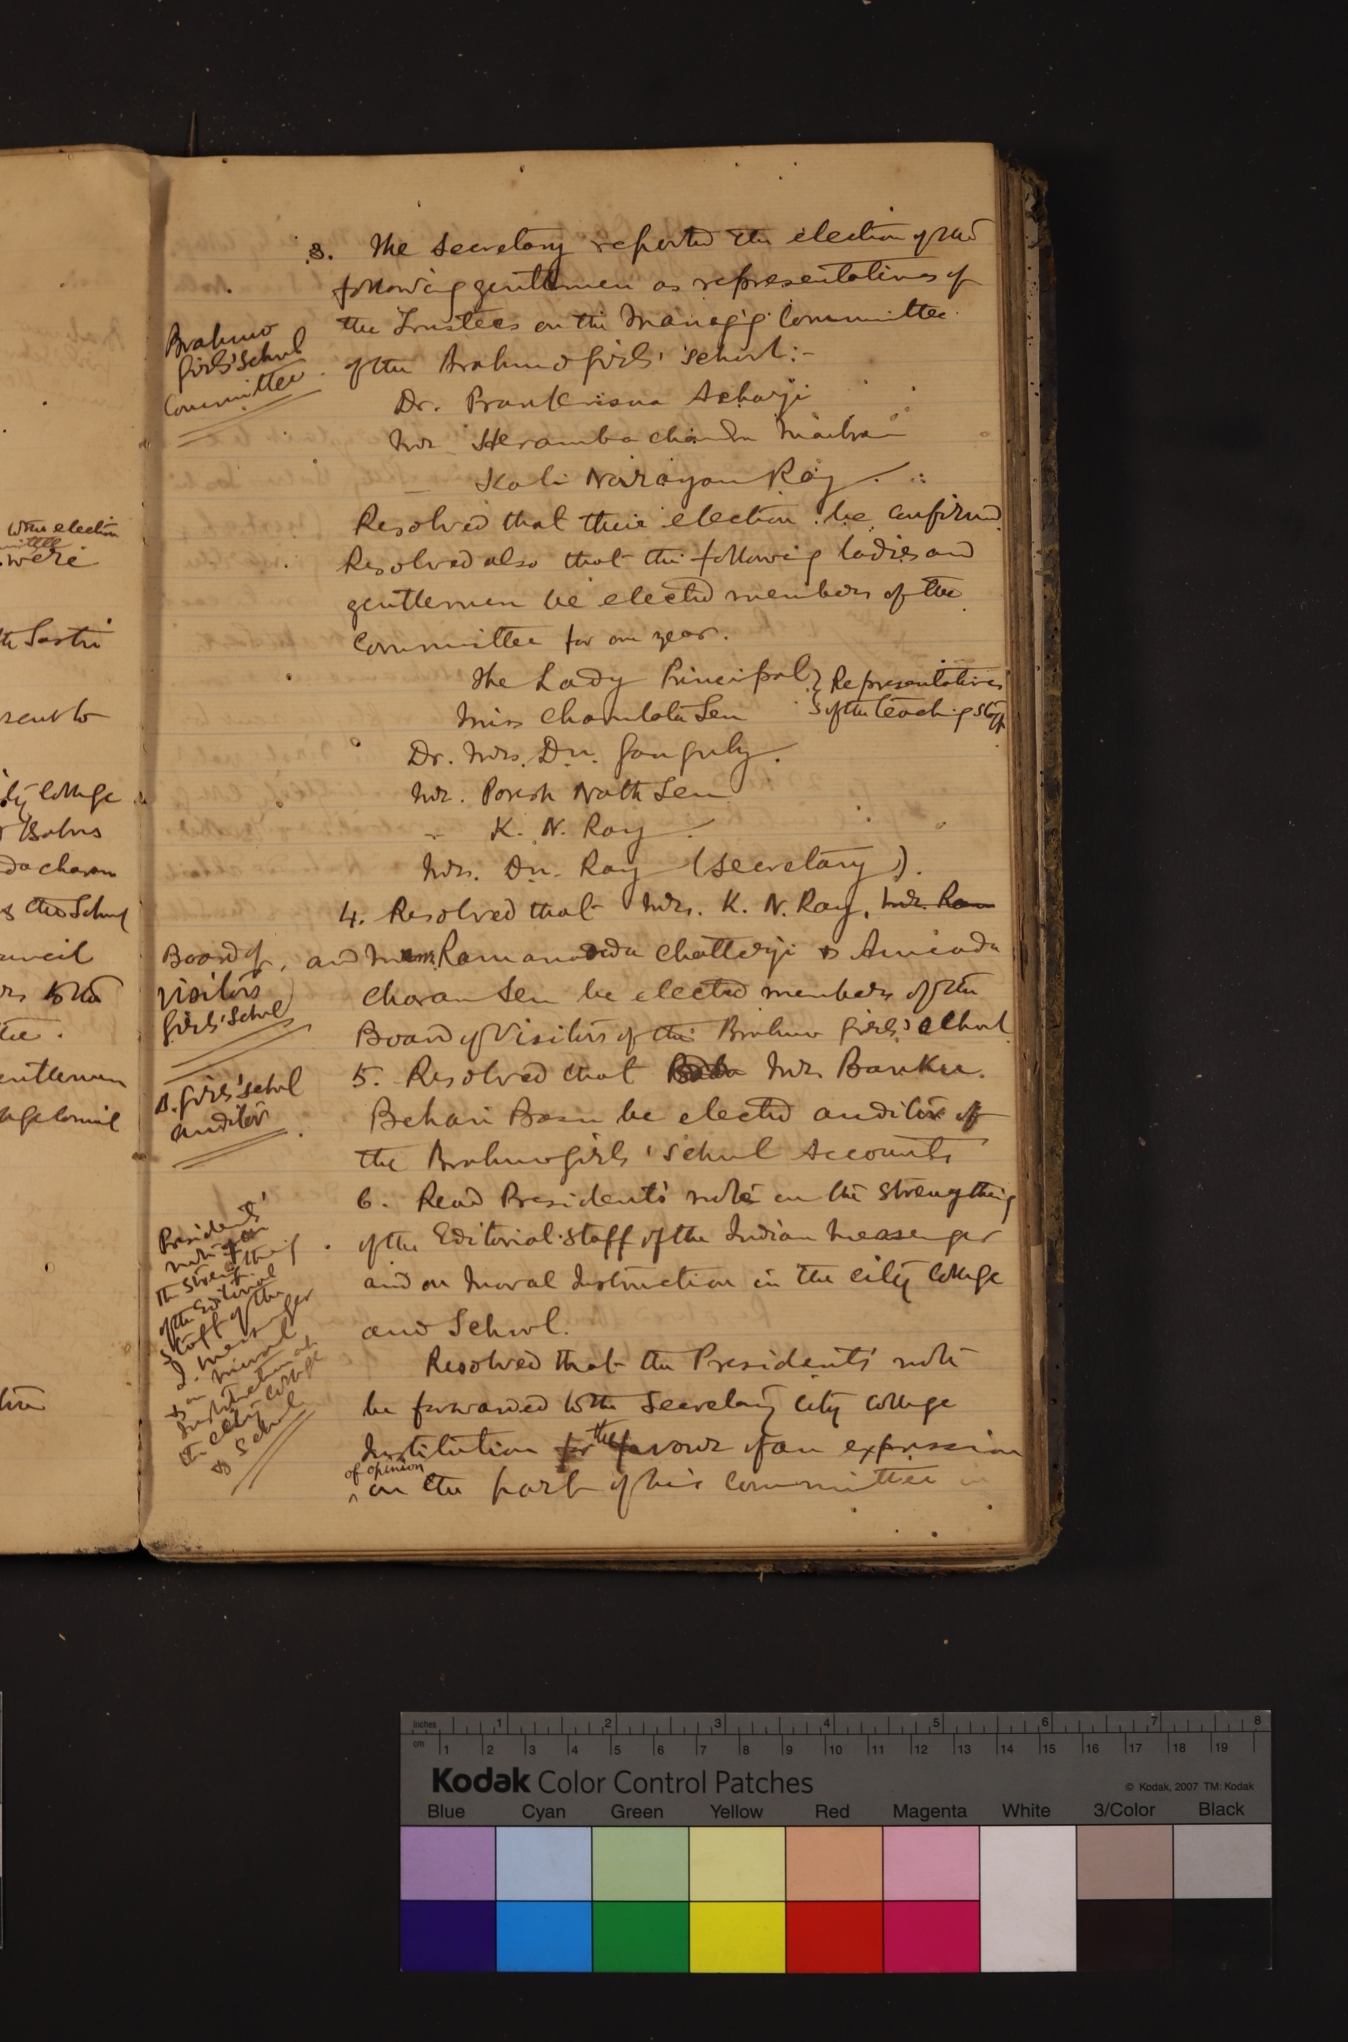 were election
were
th Sastri
sent to
ity College
r Babus
da charan
& the School
uncil
rs to the
tee.
entlemen
3. The Secretary reported the election of the
following gentlemen as representatives of
the Trustees on the Manag'g Committee
of the Brahmo Girls' School:-
Brahmo
Girls' School
Committee
Dr. Prankrisna Acharji
Mr. Heramba chandra Maitra
— Kali Narayan Ray
Resolved that their election be confirmed
Resolved also that the following ladies and
gentlemen be elected members of the
Committee for one year.
The Lady Principal } Representatives
Miss Charulata Sen } of the teaching staff
Dr. Mrs. D.N. Ganguly.
Mr. Poresh Nath Sen
— K. N. Ray
Mrs. D.N. Ray (Secretary).
4. Resolved that Mrs. K. N. Ray, Mr. Ram
and Messrs. Ramananda Chatterji & Annada
charan Sen be elected members of the
Board of Visitors of the Brahmo Girls' School
Board of
Visitors
Girls' School
5. Resolved that Babu Mr. Banku
Behari Basu be elected auditor of
the Brahmo Girls' School Accounts
B. Girls' School
auditor
6. Read President's note on the strengthening
of the Editorial Staff of the Indian Messenger
and on Moral Instruction in the City College
and School.
President's
note on
the strengthening
of the Editorial
Staff of the
I. Messenger
& on Moral
Instruction in
the City College
& School
Resolved that the President's note
be forwarded to the Secretary City College
Institution for the favour of an expression
of opinion
on the part of his Committee in
Inches 1 2 3 4 5 6 7 8
cm 1 2 3 4 5 6 7 8 9 10 11 12 13 14 15 16 17 18 19
Kodak Color Control Patches
© Kodak, 2007 TM: Kodak
Blue Cyan Green Yellow Red Magenta White 3/Color Black